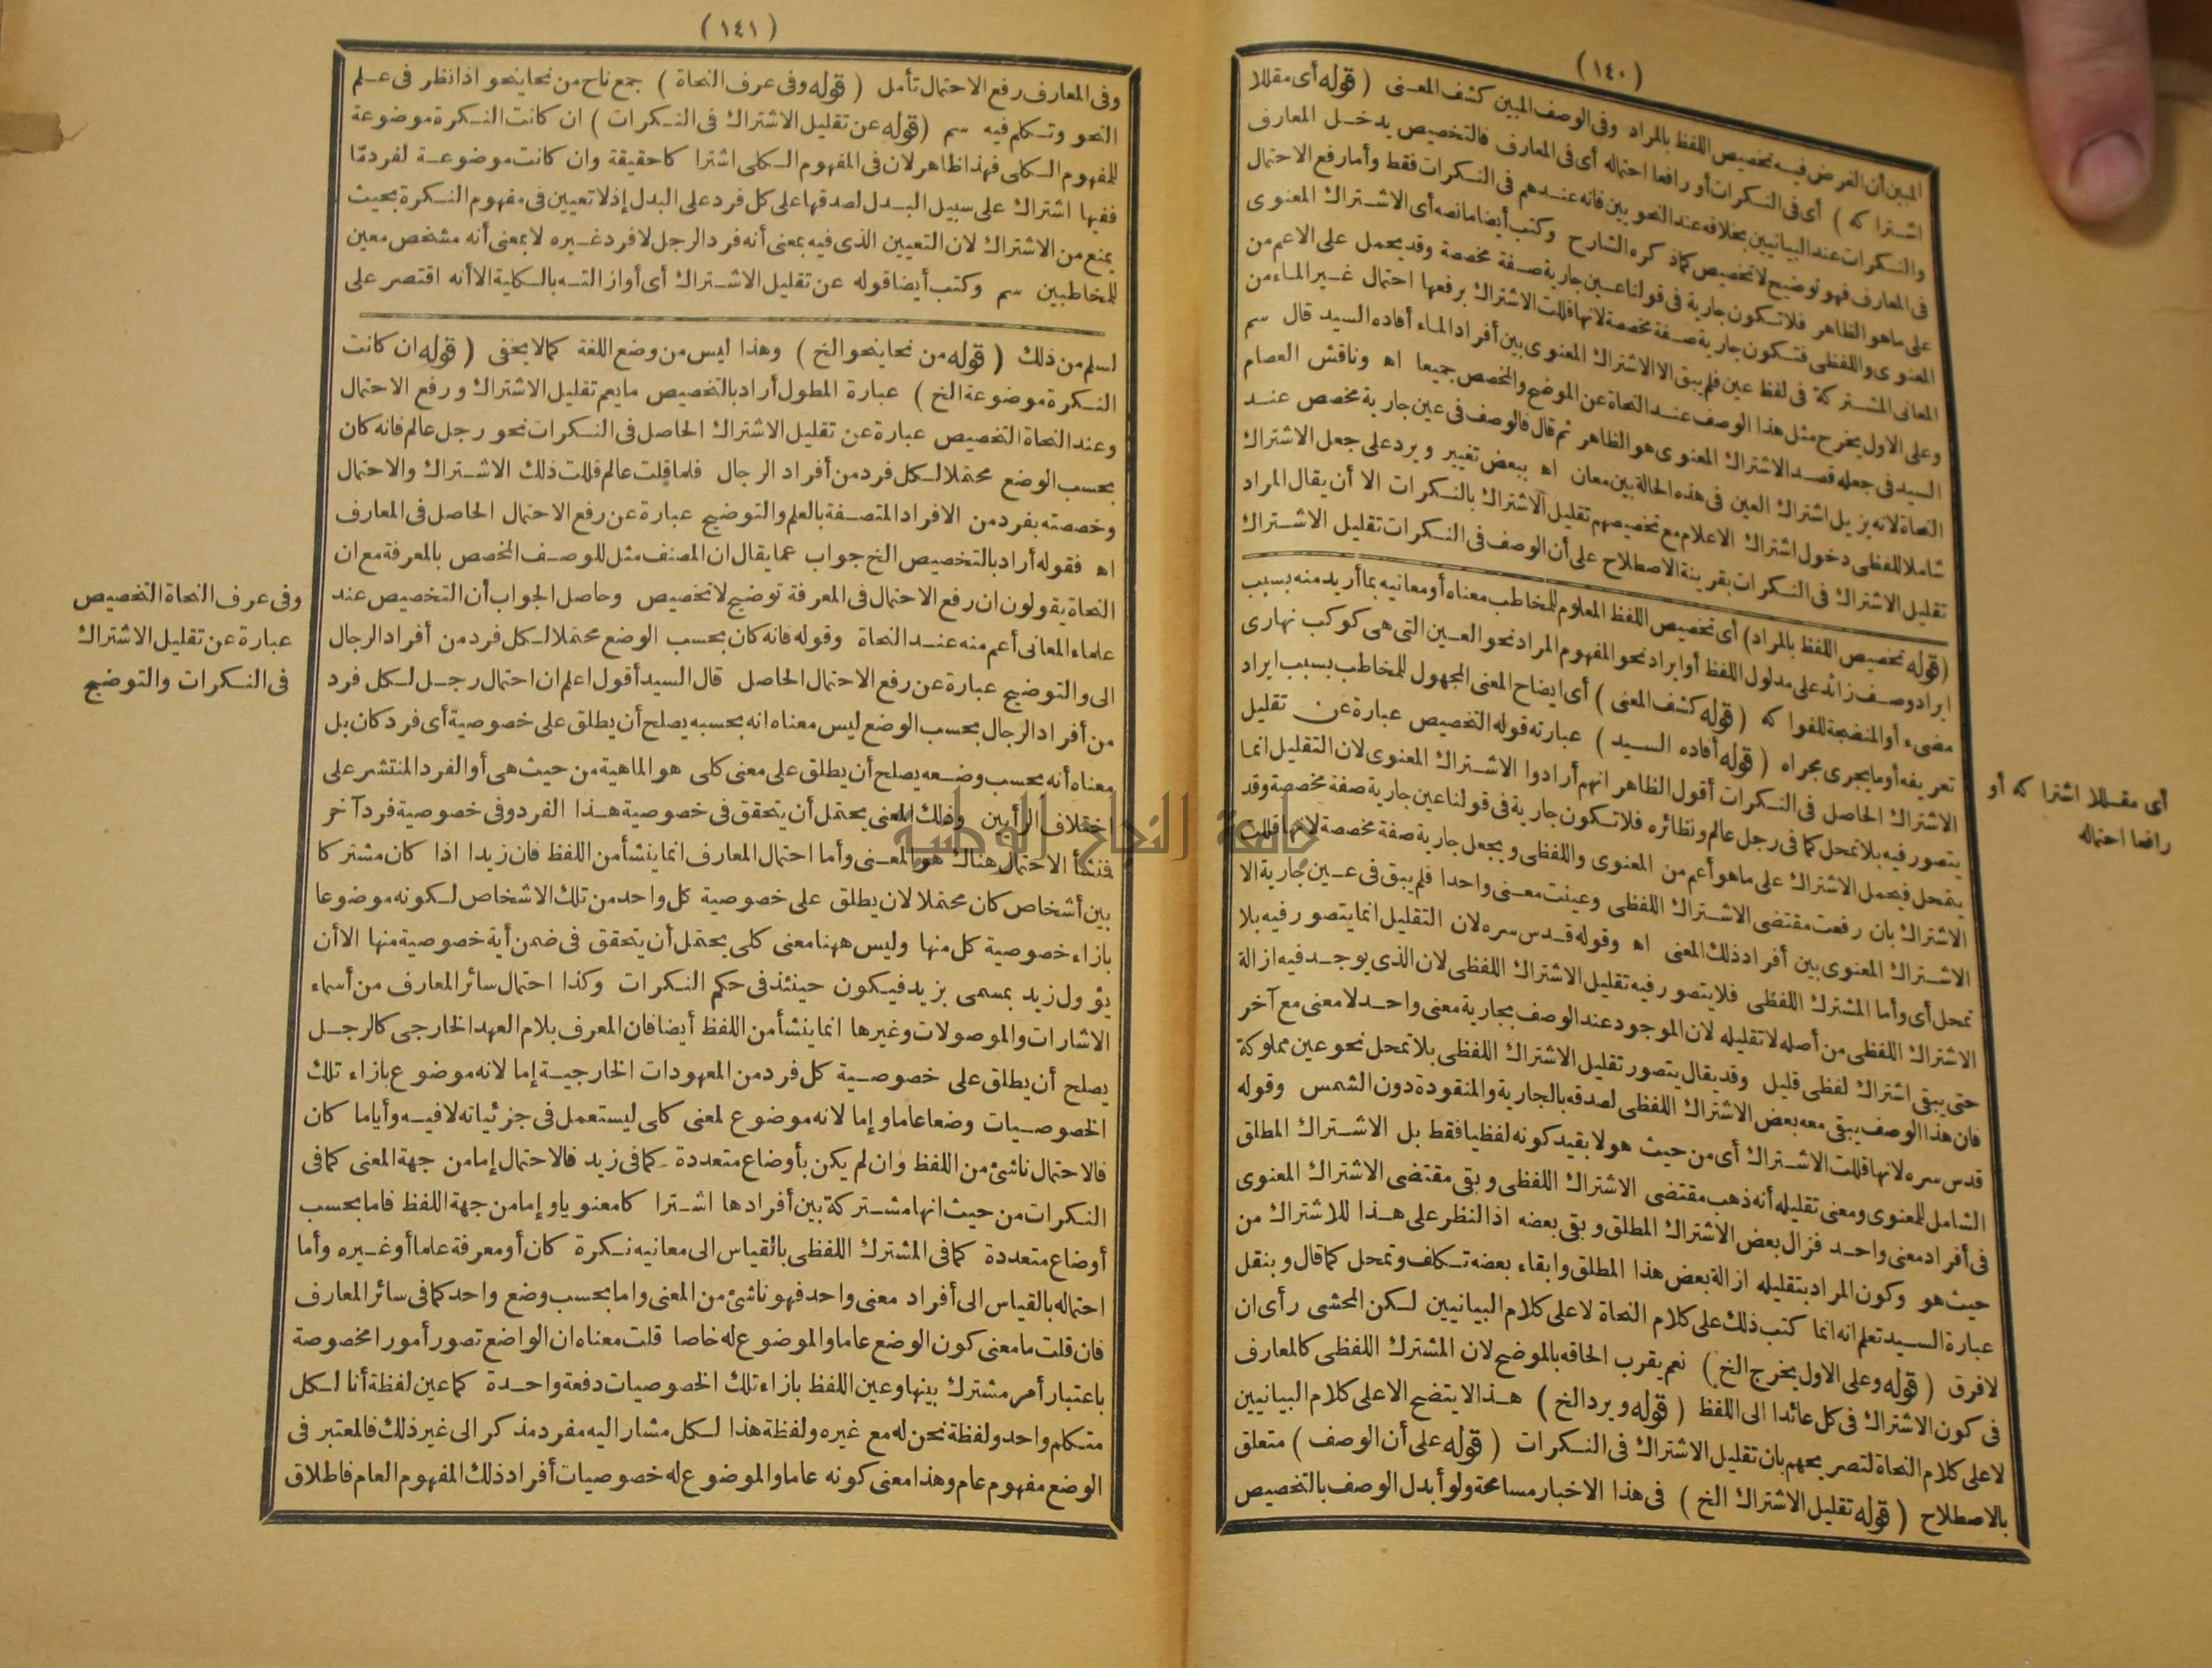 (١٤٠)
المبين أن الغرض فيه تخصيص اللفظ بالمراد وفى الوصف المبين كشف المعنى (قوله أى مقللا
اشتراكه) أى فى النكرات أو رافعا احتماله أى فى المعارف فالتخصيص يدخل المعارف
والنكرات عند البيانيين بخلافه عند النحويين فانه عندهم فى النكرات فقط وأما رفع الاحتمال
فى المعارف فهو توضيح لا تخصيص كما ذكره الشارح وكتب أيضا مانصه أى الاشتراك المعنوى
على ماهو الظاهر فلا تكون جارية فى قولنا عين جارية صفة مخصصة وقد يحمل على الاعم من
المعنوى واللفظى فتكون جارية صفة مخصصة لانها قللت الاشتراك برفعها احتمال غير الماء من
المعانى المشتركة فى لفظ عين فلم يبق الا الاشتراك المعنوى بين أفراد الماء أفاده السيد قال سم
وعلى الاول يخرج مثل هذا الوصف عند النحاة عن الموضح والمخصص جميعا اه وناقش العصام
السيد فى جعله قصد الاشتراك المعنوى هو الظاهر ثم قال فالوصف فى عين جارية مخصص عند
النحاة لانه يزيل اشتراك العين فى هذه الحالة بين معان اه ببعض تغيير ويرد على جعل الاشتراك
شاملا للفظى دخول اشتراك الاعلام مع تخصيصهم تقليل الاشتراك بالنكرات الا أن يقال المراد
تقليل الاشتراك فى النكرات بقرينة الاصطلاح على أن الوصف فى النكرات تقليل الاشتراك
(قوله تخصيص اللفظ بالمراد) أى تخصيص اللفظ المعلوم للمخاطب معناه أو معانيه بما أريد منه بسبب
ايراد وصف زائد على مدلول اللفظ أو ايراد نحو المفهوم المراد نحو العين التى هى كوكب نهارى
مضىء أو المنضجة للفواكه (قوله كشف المعنى) أى ايضاح المعنى المجهول للمخاطب بسبب ايراد
تعريفه أو ما يجرى مجراه (قوله أفاده السيد) عبارته قوله التخصيص عبارة عن تقليل
الاشتراك الحاصل فى النكرات أقول الظاهر انهم أرادوا الاشتراك المعنوى لان التقليل انما
يتصور فيه بلا تمحل كما فى رجل عالم ونظائره فلا تكون جارية فى قولنا عين جارية صفة مخصصة وقد
يتمحل فيحمل الاشتراك على ماهو أعم من المعنوى واللفظى ويجعل جارية صفة مخصصة لانها قللت
الاشتراك بان رفعت مقتضى الاشتراك اللفظى وعينت معنى واحدا فلم يبق فى عين جارية الا
الاشتراك المعنوى بين أفراد ذلك المعنى اه وقوله قدس سره لان التقليل انما يتصور فيه بلا
تمحل أى وأما المشترك اللفظى فلا يتصور فيه تقليل الاشتراك اللفظى لان الذى يوجد فيه ازالة
الاشتراك اللفظى من أصله لا تقليله لان الموجود عند الوصف بجارية معنى واحد لا معنى مع آخر
حتى يبقى اشتراك لفظى قليل وقد يقال يتصور تقليل الاشتراك اللفظى بلا تمحل نحو عين مملوكة
فان هذا الوصف يبقى معه بعض الاشتراك اللفظى لصدقه بالجارية والمنقودة دون الشمس وقوله
قدس سره لانها قللت الاشتراك أى من حيث هو لا بقيد كونه لفظيا فقط بل الاشتراك المطلق
الشامل للمعنوى ومعنى تقليله أنه ذهب مقتضى الاشتراك اللفظى وبقى مقتضى الاشتراك المعنوى
فى أفراد معنى واحد فزال بعض الاشتراك المطلق وبقى بعضه اذ النظر على هذا للاشتراك من
حيث هو وكون المراد بتقليله ازالة بعض هذا المطلق وابقاء بعضه تكلف وتمحل كما قال وبنقل
عبارة السيد تعلم انه انما كتب ذلك على كلام النحاة لا على كلام البيانيين لكن المحشى رأى ان
لا فرق (قوله وعلى الاول يخرج الخ) نعم يقرب الحاقه بالموضح لان المشترك اللفظى كالمعارف
فى كون الاشتراك فى كل عائدا الى اللفظ (قوله ويرد الخ) هذا لا يتضح الا على كلام البيانيين
لا على كلام النحاة لتصريحهم بان تقليل الاشتراك فى النكرات (قوله على أن الوصف) متعلق
بالاصطلاح (قوله تقليل الاشتراك الخ) فى هذا الاخبار مسامحة ولو أبدل الوصف بالتخصيص
أى مقللا اشتراكه أو
رافعا احتماله
(١٤١)
وفى المعارف رفع الاحتمال تأمل (قوله وفى عرف النحاة) جمع ناح من نحا ينحو اذا نظر فى علم
النحو وتكلم فيه سم (قوله عن تقليل الاشتراك فى النكرات) ان كانت النكرة موضوعة
للمفهوم الكلى فهذا ظاهر لان فى المفهوم الكلى اشتراكا حقيقة وان كانت موضوعة لفرد مّا
ففيها اشتراك على سبيل البدل لصدقها على كل فرد على البدل إذ لا تعيين فى مفهوم النكرة بحيث
يمنع من الاشتراك لان التعيين الذى فيه بمعنى أنه فرد الرجل لا فرد غيره لا بمعنى أنه مشخص معين
للمخاطبين سم وكتب أيضا قوله عن تقليل الاشتراك أى أو ازالته بالكلية الا أنه اقتصر على
لسلم من ذلك (قوله من نحا ينحو الخ) وهذا ليس من وضع اللغة كما لا يخفى (قوله ان كانت
النكرة موضوعة الخ) عبارة المطول أراد بالتخصيص ما يعم تقليل الاشتراك ورفع الاحتمال
وعند النحاة التخصيص عبارة عن تقليل الاشتراك الحاصل فى النكرات نحو رجل عالم فانه كان
بحسب الوضع محتملا لكل فرد من أفراد الرجال فلما قلت عالم قللت ذلك الاشتراك والاحتمال
وخصصته بفرد من الافراد المتصفة بالعلم والتوضيح عبارة عن رفع الاحتمال الحاصل فى المعارف
اه فقوله أراد بالتخصيص الخ جواب عما يقال ان المصنف مثل للوصف المخصص بالمعرفة مع ان
النحاة يقولون ان رفع الاحتمال فى المعرفة توضيح لا تخصيص وحاصل الجواب أن التخصيص عند
علماء المعانى أعم منه عند النحاة وقوله فانه كان بحسب الوضع محتملا لكل فرد من أفراد الرجال
الى والتوضيح عبارة عن رفع الاحتمال الحاصل قال السيد أقول اعلم ان احتمال رجل لكل فرد
من أفراد الرجال بحسب الوضع ليس معناه انه بحسبه يصلح أن يطلق على خصوصية أى فرد كان بل
معناه أنه بحسب وضعه يصلح أن يطلق على معنى كلى هو الماهية من حيث هى أو الفرد المنتشر على
اختلاف الرأيين وذلك المعنى يحتمل أن يتحقق فى خصوصية هذا الفرد وفى خصوصية فرد آخر
فنشأ الاحتمال هناك هو المعنى وأما احتمال المعارف انما ينشأ من اللفظ فان زيدا اذا كان مشتركا
بين أشخاص كان محتملا لان يطلق على خصوصية كل واحد من تلك الاشخاص لكونه موضوعا
بازاء خصوصية كل منها وليس ههنا معنى كلى يحتمل أن يتحقق فى ضمن أية خصوصية منها الا أن
يؤول زيد بمسمى بزيد فيكون حينئذ فى حكم النكرات وكذا احتمال سائر المعارف من أسماء
الاشارات والموصولات وغيرها انما ينشأ من اللفظ أيضا فان المعرف بلام العهد الخارجى كالرجل
يصلح أن يطلق على خصوصية كل فرد من المعهودات الخارجية إما لانه موضوع بازاء تلك
الخصوصيات وضعا عاما وإما لانه موضوع لمعنى كلى ليستعمل فى جزئياته لا فيه وأياما كان
فالاحتمال ناشئ من اللفظ وان لم يكن بأوضاع متعددة كما فى زيد فالاحتمال إما من جهة المعنى كما فى
النكرات من حيث انها مشتركة بين أفرادها اشتراكا معنويا وإما من جهة اللفظ فاما بحسب
أوضاع متعددة كما فى المشترك اللفظى بالقياس الى معانيه نكرة كان أو معرفة عاما أو غيره وأما
احتماله بالقياس الى أفراد معنى واحد فهو ناشئ من المعنى واما بحسب وضع واحد كما فى سائر المعارف
فان قلت ما معنى كون الوضع عاما والموضوع له خاصا قلت معناه ان الواضع تصور أمورا مخصوصة
باعتبار أمر مشترك بينها وعين اللفظ بازاء تلك الخصوصيات دفعة واحدة كما عين لفظة أنا لكل
متكلم واحد ولفظة نحن له مع غيره ولفظة هذا لكل مشار اليه مفرد مذكر الى غير ذلك فالمعتبر فى
الوضع مفهوم عام وهذا معنى كونه عاما والموضوع له خصوصيات أفراد ذلك المفهوم العام فاطلاق
وفى عرف النحاة التخصيص
عبارة عن تقليل الاشتراك
فى النكرات والتوضيح
جامعة النجاح الوطنية